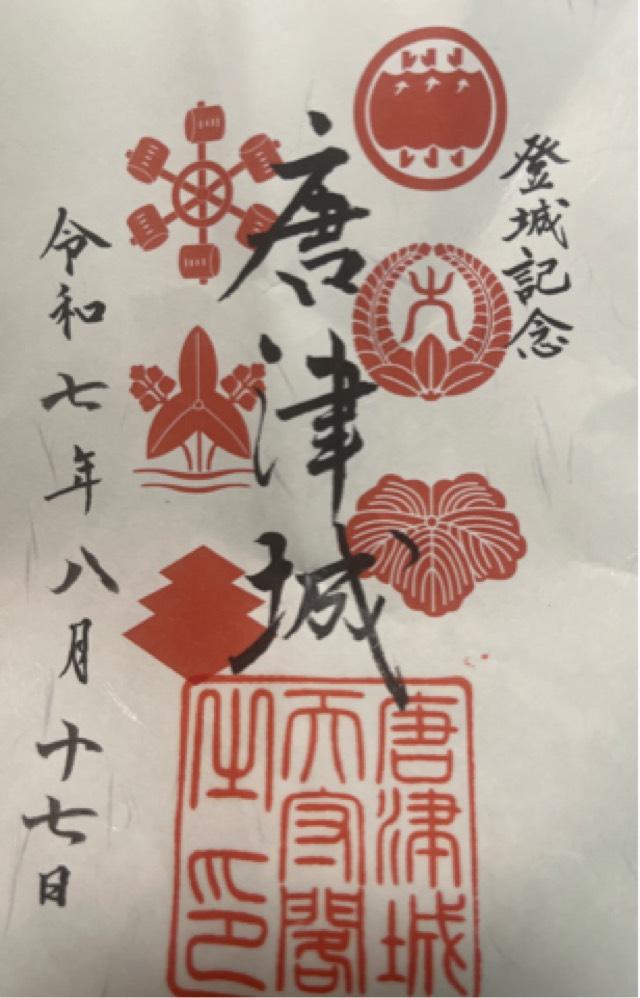 登城記念
唐津城
令和七年八月十七日
大
唐津城
天守閣
之印